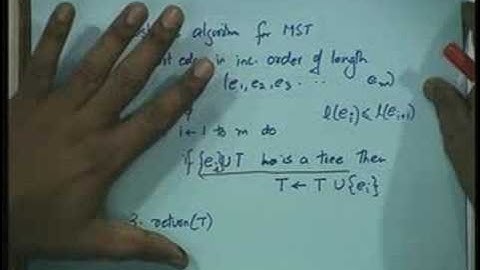 algorithm for MST
in inc. order of length
(e1, e2, e3 ... em)
l(ei) ≤ l(ei+1)
i ← 1 to m do
if {ei} ∪ T is a tree then
T ← T ∪ {ei}
3. return(T)